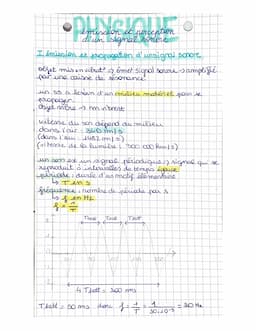 PHYSIQUE
émission et perception
d'un signal sonore
I. Émission et propagation d'un signal sonore
objet mis en vibrat° → émet signal sonore → amplifié
par une caisse de résonance
un ss a besoin d'un milieu matériel pour se
propager.
vitesse du son dépend du milieu
dans l'air : 340 m/s
(vitesse de la lumière : 300 000 km/s)
un son est un signal périodique : signal qui se
reproduit à intervalles de temps
période : durée d'un motif élémentaire
↳ T en s
fréquence : nombre de période par s
↳ f en Hz
↳ f = 1/T
Tbatt Tbatt Tbatt
Tbatt = 50 ms donc f = 1/T = 1/50.10⁻³ = 20 Hz